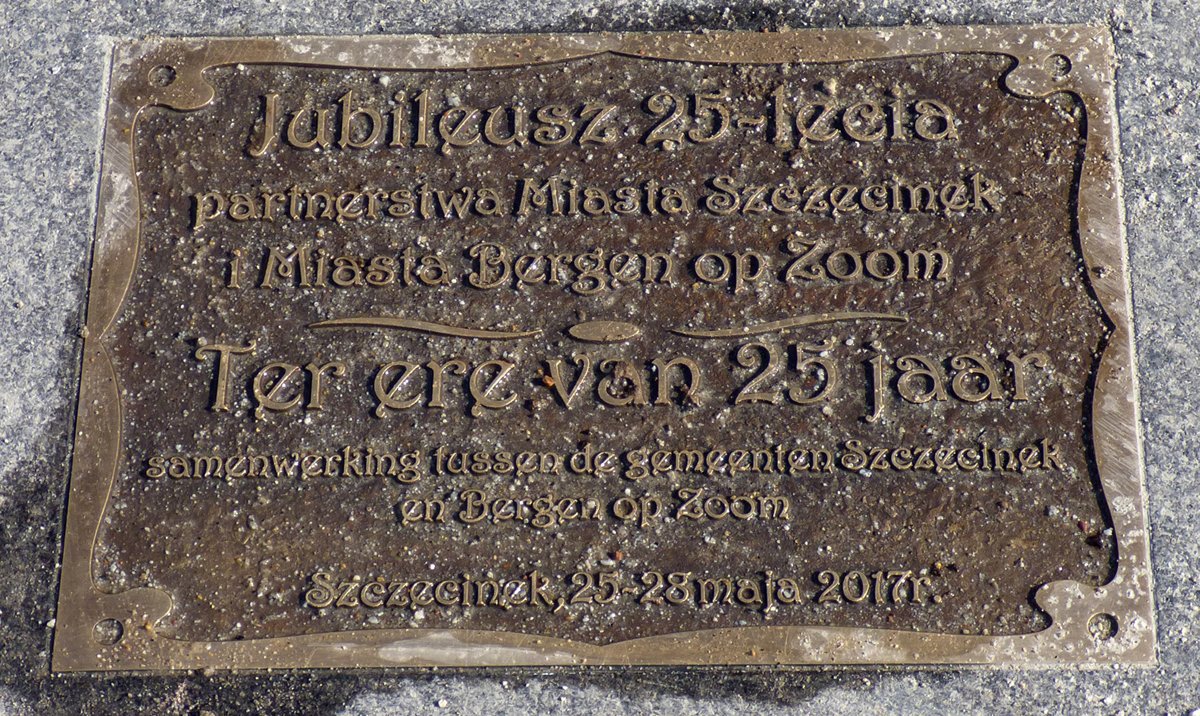 Jubileusz 25-lecia
partnerstwa Miasta Szczecinek
i Miasta Bergen op Zoom
Ter ere van 25 jaar
samenwerking tussen de gemeenten Szczecinek
en Bergen op Zoom
Szczecinek, 25-28 maja 2017r.